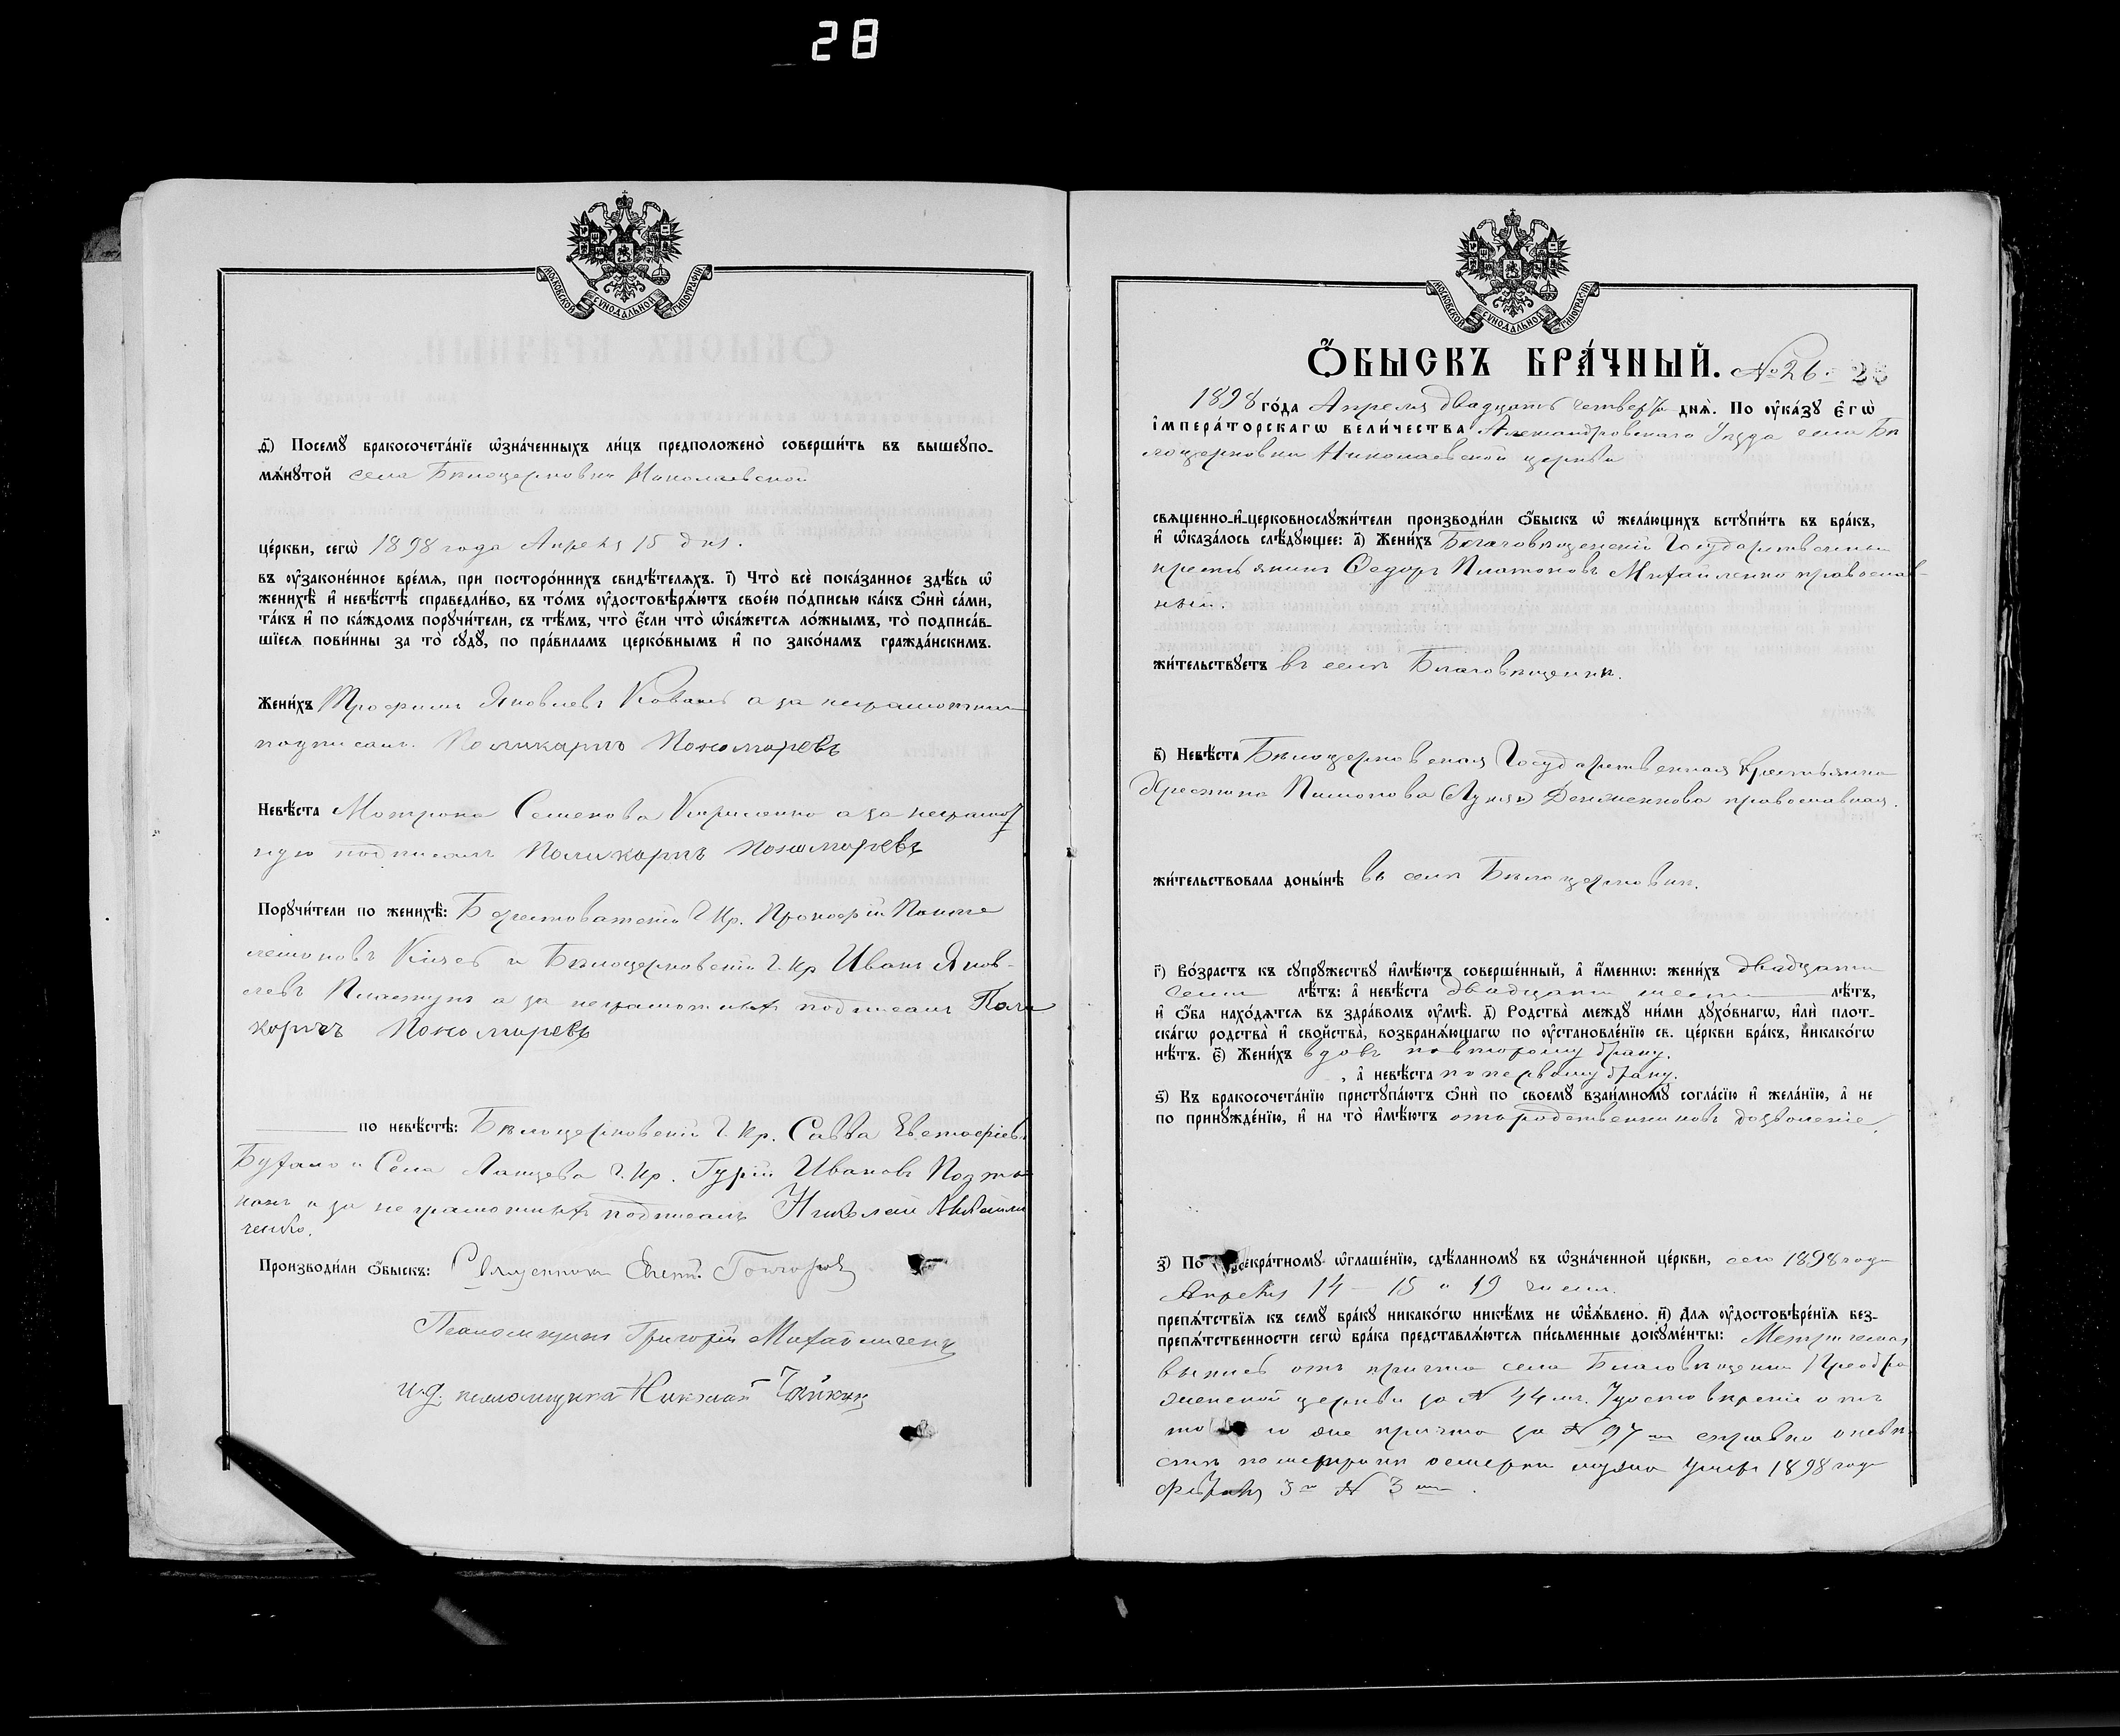 28
МОСКОВСКОЙ СѴНОДАЛЬНОЙ ТИПОГРАФІИ
д҃і) Посемꙋ̀ бракосочета́нїе ѡ҆зна́ченныхъ ли́цъ предположено̀ соверши́ть въ вышеꙋпо-
мѧ́нꙋтой села Бѣлоцерковки Николаевской
це́ркви, сегѡ̀ 1898 года Апрѣля 15 дня.
въ ᲂу҆зако́ненное вре́мѧ, при посторо́ннихъ свидѣ́телѧхъ. і҃) Что̀ всѐ пока́занное здѣ́сь ѡ҆
женихѣ̀ и҆ невѣ́стѣ справедли́во, въ то́мъ ᲂу҆достовѣрѧ́ютъ свое́ю по́дписью ка́къ ѻ҆нѝ са́ми,
та́къ и҆ по ка́ждомъ порꙋчи́тели, съ тѣ́мъ, что̀ є҆́сли что̀ ѡ҆ка́жетсѧ ло́жнымъ, то̀ подписа́в-
шїесѧ пови́нны за то̀ сꙋдꙋ̀, по пра́виламъ церко́внымъ и҆ по зако́намъ гражда́нскимъ.
Жени́хъ Трофимъ Яковлевъ Коваль а за неграмотнаго
подписалъ Поликарпъ Пономаревъ
Невѣ́ста Мотрона Семенова Кириленко а за неграмот
ную подписалъ Поликарпъ Пономаревъ
Порꙋчи́тели по женихѣ̀: Г. Кр. Прокофій
и Бѣлоцерковскій Г. Кр Иванъ Яков-
левъ Пластунъ а за неграмотныхъ подписалъ Поли
карпъ Пономаревъ
по невѣ́стѣ: Бѣлоцерковскій Г. Кр. Савва Евстафіевъ
и Села Г. Кр. Гурій Ивановъ
а за неграмотныхъ подписалъ Николай Михайли
ченко.
Производи́ли ѻ҆́быскъ: Священникъ Гончаровъ
Псаломщикъ Григорій Михайличенко
и.д. псаломщика Николай Чайкинъ
МОСКОВСКОЙ СѴНОДАЛЬНОЙ ТИПОГРАФІИ
Ѻ҆́БЫСКЪ БРА́ЧНЫЙ. № 26.
1898 го́да Апреля двадцать четверта днѧ̀. По ᲂу҆ка́зꙋ є҆гѡ̀
і҆мпера́торскагѡ вели́чества Александровскаго Уѣзда села Бѣ
лоцерковки Николаевской церкви
свѧще́нно-и҆-церковнослꙋжи́тели производи́ли ѻ҆́быскъ ѡ҆ жела́ющихъ встꙋпи́ть въ бра́къ,
и҆ ѡ҆каза́лось слѣ́дꙋющее: а҃) Жени́хъ Благовѣщенскій Государственный
крестьянинъ Ѳедоръ Платоновъ Михайленко православ-
ный.
жи́тельствꙋетъ въ селѣ Благовѣщенкѣ.
в҃) Невѣ́ста Бѣлоцерковская Государственная крестьянка
Христина Пимонова православная.
жи́тельствовала доны́нѣ въ селѣ Бѣлоцерковкѣ.
г҃) Во́зрастъ къ сꙋпрꙋ́жествꙋ и҆мѣ́ютъ соверше́нный, а҆ и҆́менно: жени́хъ двадцати
семи лѣ́тъ: а҆ невѣ́ста двадцати шести лѣ́тъ,
и҆ ѻ҆́ба нахо́дѧтсѧ въ здра́вомъ ᲂу҆мѣ̀. д҃) Родства̀ междꙋ̀ ни́ми дꙋхо́внагѡ, и҆лѝ пло́т-
ска́гѡ родства̀ и҆ сво́йства, возбранѧ́ющагѡ по ᲂу҆становле́нїю св. це́ркви бра́къ, никако́гѡ
нѣ́тъ. є҃) Жени́хъ вдовъ повторому браку.
, а҆ невѣ́ста по первому браку.
ѕ҃) Къ бракосочета́нїю пристꙋпа́ютъ ѻ҆нѝ по своемꙋ̀ взаи́мномꙋ согла́сїю и҆ жела́нїю, а҆ не
по принꙋжде́нїю, и҆ на то̀ и҆мѣ́ютъ отъ родственниковъ дозволеніе.
з҃) По кра́тномꙋ ѡ҆глаше́нїю, сдѣ́ланномꙋ въ ѡ҆зна́ченной це́ркви, сего 1898 года
Апрѣля 14 – 15 и 19 числ.
препѧ́тствїѧ къ семꙋ̀ бра́кꙋ никако́гѡ никѣ́мъ не ѡ҆б̾ѧ́влено. и҃) Длѧ ᲂу҆достовѣре́нїѧ без-
препѧ́тственности сегѡ̀ бра́ка представлѧ́ютсѧ пи́сьменные докꙋме́нты: Метрическая
выпись отъ причта села Благовѣщенки Преобра
женской церкви за № 44 м. Удостовѣреніе отъ
то го же причта за № 97 м справка о невѣ
стѣ о смерти мужа умер 1898 года
Февраля 3 го № 3 м.